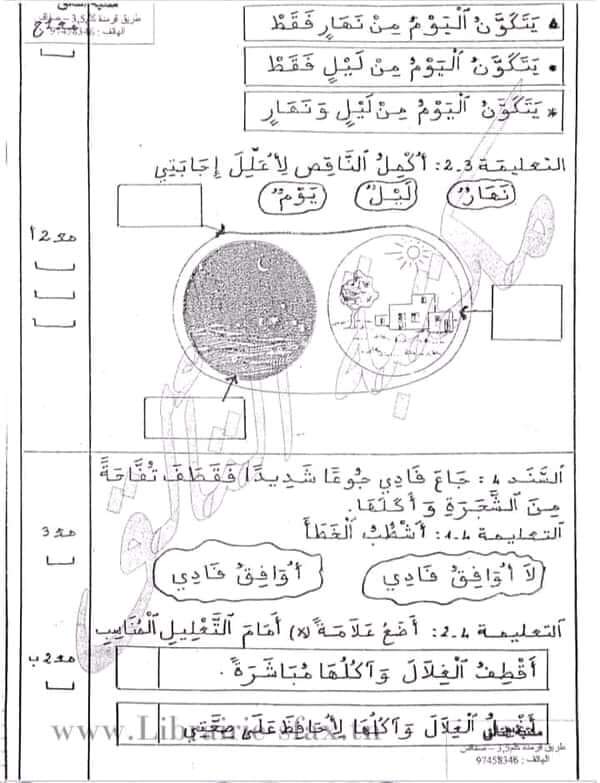 طريق قرمدة كلم3,5 - صفاقس
الهاتف : 97458346
يَتَكَوَّنُ ٱلْيَوْمُ مِنْ نَهَارٍ فَقَطْ
• يَتَكَوَّنُ ٱلْيَوْمُ مِنْ لَيْلٍ فَقَطْ
* يَتَكَوَّنُ ٱلْيَوْمُ مِنْ لَيْلٍ وَ نَهَارٍ
التعليمة 3-2: أُكْمِلُ ٱلنَّاقِصَ لِأُعَلِّلَ إِجَابَتِي
نَهَارٌ لَيْلٌ يَوْمٌ
مع2أ
السَّنَد 4: جَاعَ فَادِي جُوعًا شَدِيدًا فَقَطَفَ تُفَّاحَةً
مِنَ ٱلشَّجَرَةِ وَ أَكَلَهَا.
التعليمة 4-1: أَشْطُبُ ٱلْخَطَأَ
مع3
لَا أُوَافِقُ فَادِي أُوَافِقُ فَادِي
التعليمة 4-2: أَضَعُ عَلَامَةَ (x) أَمَامَ ٱلتَّعْلِيلِ ٱلْمُنَاسِبِ
مع2ب
أَقْطِفُ ٱلْغِلَالَ وَ آكُلُهَا مُبَاشَرَةً.
أَغْسِلُ ٱلْغِلَالَ وَ آكُلُهَا لِأُحَافِظَ عَلَى صِحَّتِي
www.Librairie-sfax.tn
طريق قرمدة كلم3,5 - صفاقس
الهاتف : 97458346